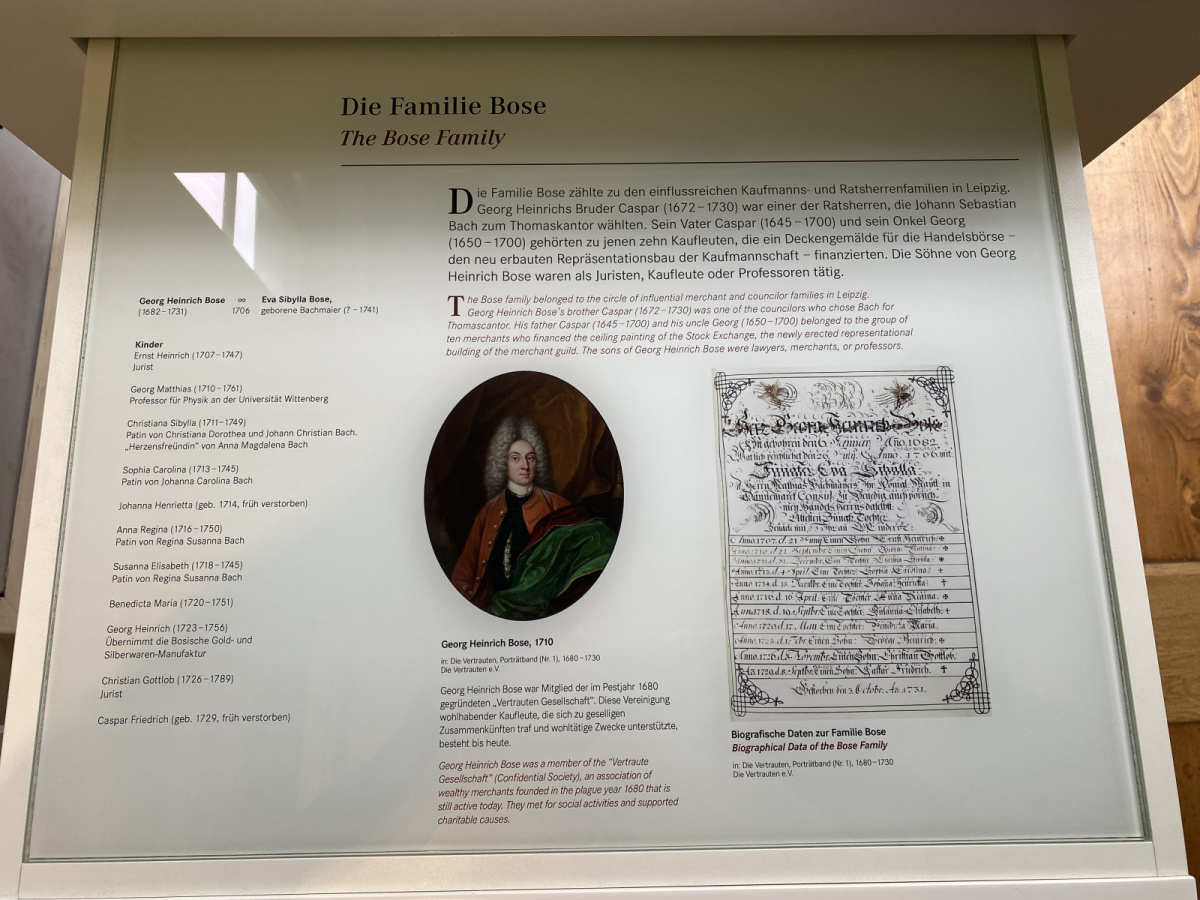 Die Familie Bose
The Bose Family
Die Familie Bose zählte zu den einflussreichen Kaufmanns- und Ratsherrenfamilien in Leipzig.
Georg Heinrichs Bruder Caspar (1672–1730) war einer der Ratsherren, die Johann Sebastian
Bach zum Thomaskantor wählten. Sein Vater Caspar (1645–1700) und sein Onkel Georg
(1650–1700) gehörten zu jenen zehn Kaufleuten, die ein Deckengemälde für die Handelsbörse –
den neu erbauten Repräsentationsbau der Kaufmannschaft – finanzierten. Die Söhne von Georg
Heinrich Bose waren als Juristen, Kaufleute oder Professoren tätig.
The Bose family belonged to the circle of influential merchant and councilor families in Leipzig.
Georg Heinrich Bose's brother Caspar (1672–1730) was one of the councilors who chose Bach for
Thomascantor. His father Caspar (1645–1700) and his uncle Georg (1650–1700) belonged to the group of
ten merchants who financed the ceiling painting of the Stock Exchange, the newly erected representational
building of the merchant guild. The sons of Georg Heinrich Bose were lawyers, merchants, or professors.
Georg Heinrich Bose ∞ Eva Sibylla Bose,
(1682–1731) 1706 geborene Bachmaier (? – 1741)
Kinder
Ernst Heinrich (1707–1747)
Jurist
Georg Matthias (1710–1761)
Professor für Physik an der Universität Wittenberg
Christiana Sibylla (1711–1749)
Patin von Christiana Dorothea und Johann Christian Bach.
„Herzensfreündin“ von Anna Magdalena Bach
Sophia Carolina (1713–1745)
Patin von Johanna Carolina Bach
Johanna Henrietta (geb. 1714, früh verstorben)
Anna Regina (1716–1750)
Patin von Regina Susanna Bach
Susanna Elisabeth (1718–1745)
Patin von Regina Susanna Bach
Benedicta Maria (1720–1751)
Georg Heinrich (1723–1756)
Übernimmt die Bosische Gold- und
Silberwaren-Manufaktur
Christian Gottlob (1726–1789)
Jurist
Caspar Friedrich (geb. 1729, früh verstorben)
Georg Heinrich Bose, 1710
in: Die Vertrauten, Porträtband (Nr. 1), 1680–1730
Die Vertrauten e.V.
Georg Heinrich Bose war Mitglied der im Pestjahr 1680
gegründeten „Vertrauten Gesellschaft“. Diese Vereinigung
wohlhabender Kaufleute, die sich zu geselligen
Zusammenkünften traf und wohltätige Zwecke unterstützte,
besteht bis heute.
Georg Heinrich Bose was a member of the “Vertraute
Gesellschaft” (Confidential Society), an association of
wealthy merchants founded in the plague year 1680 that is
still active today. They met for social activities and supported
charitable causes.
Anno 1706 mit
Eva Sibylla
Anno 1707. d. 21 Einen Sohn Ernst Heinrich
Anno 1713. d. 4 April. Eine Tochter Sophia Carolina
Anno 1716. d. 16 April. Eine Tochter Anna Regina
Anno 1718. d. 19. Septbr. Eine Tochter. Susanna Elisabeth.
Anno 1720. d. 17. May. Eine Tochter Benedicta Maria.
Anno 1726. d. 8. Novembr. Einen Sohn Christian Gottlob.
Gestorben den 3. Octobr. Ao. 1731.
Biografische Daten zur Familie Bose
Biographical Data of the Bose Family
in: Die Vertrauten, Porträtband (Nr. 1), 1680–1730
Die Vertrauten e.V.